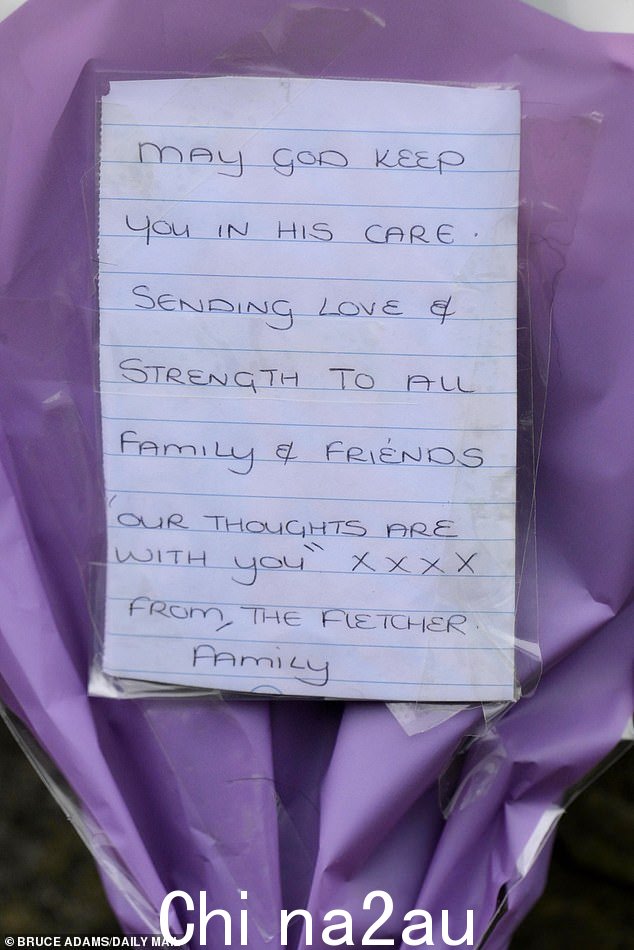 MAY GOD KEEP
YOU IN HIS CARE.
SENDING LOVE &
STRENGTH TO ALL
FAMILY & FRIENDS
"OUR THOUGHTS ARE
WITH YOU" X X X X
FROM, THE FLETCHER.
FAMILY
Chi na2au
© BRUCE ADAMS/DAILY MAIL